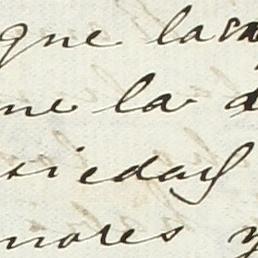 que la
me la
siedad
nores y